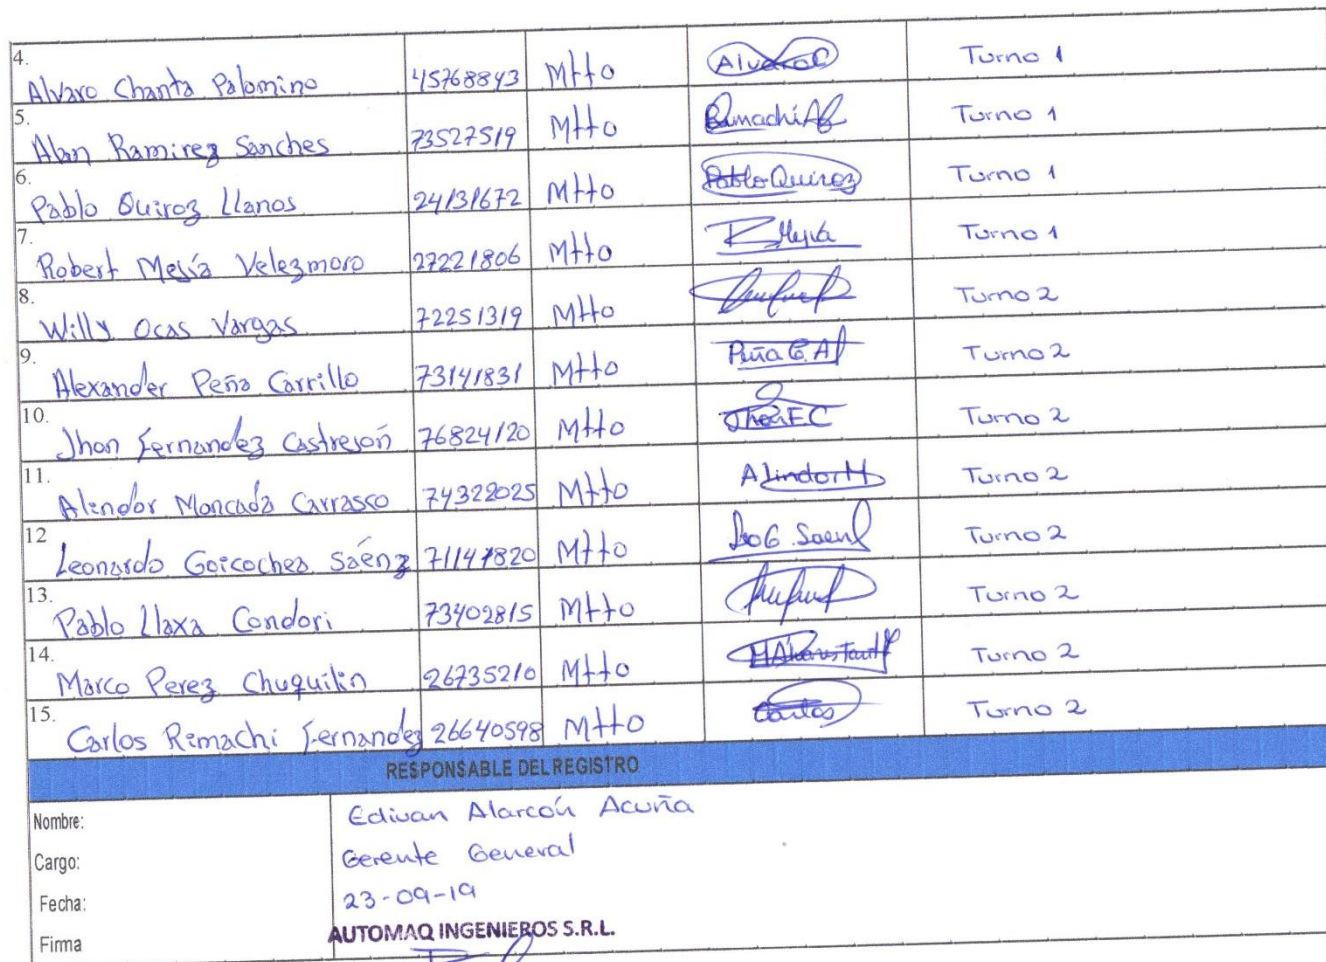 4. Alvaro Chanta Palomino 45768843 Mtto Alvaro C Turno 1
5. Alan Ramirez Sanches 73527519 Mtto Rimachi Turno 1
6. Pablo Quiroz Llanos 24131672 Mtto Pablo Quiroz Turno 1
7. Robert Mejía Velezmoro 27221806 Mtto R Mejia Turno 1
8. Willy Ocas Vargas 72251319 Mtto Turno 2
9. Alexander Peña Carrillo 73141831 Mtto Peña C. Al Turno 2
10. Jhon Fernandez Castrejón 76824120 Mtto Jhon F.C Turno 2
11. Alindor Moncada Carrasco 74322025 Mtto Alindor M Turno 2
12 Leonardo Goicochea Sáenz 71147820 Mtto Leo G. Saenz Turno 2
13. Pablo Llaxa Condori 73402815 Mtto Turno 2
14. Marco Perez Chuquilin 26735210 Mtto Turno 2
15. Carlos Rimachi Fernandez 26640598 Mtto Carlos Turno 2
RESPONSABLE DEL REGISTRO
Nombre: Edivan Alarcón Acuña
Cargo: Gerente General
Fecha: 23-09-19
AUTOMAQ INGENIEROS S.R.L.
Firma